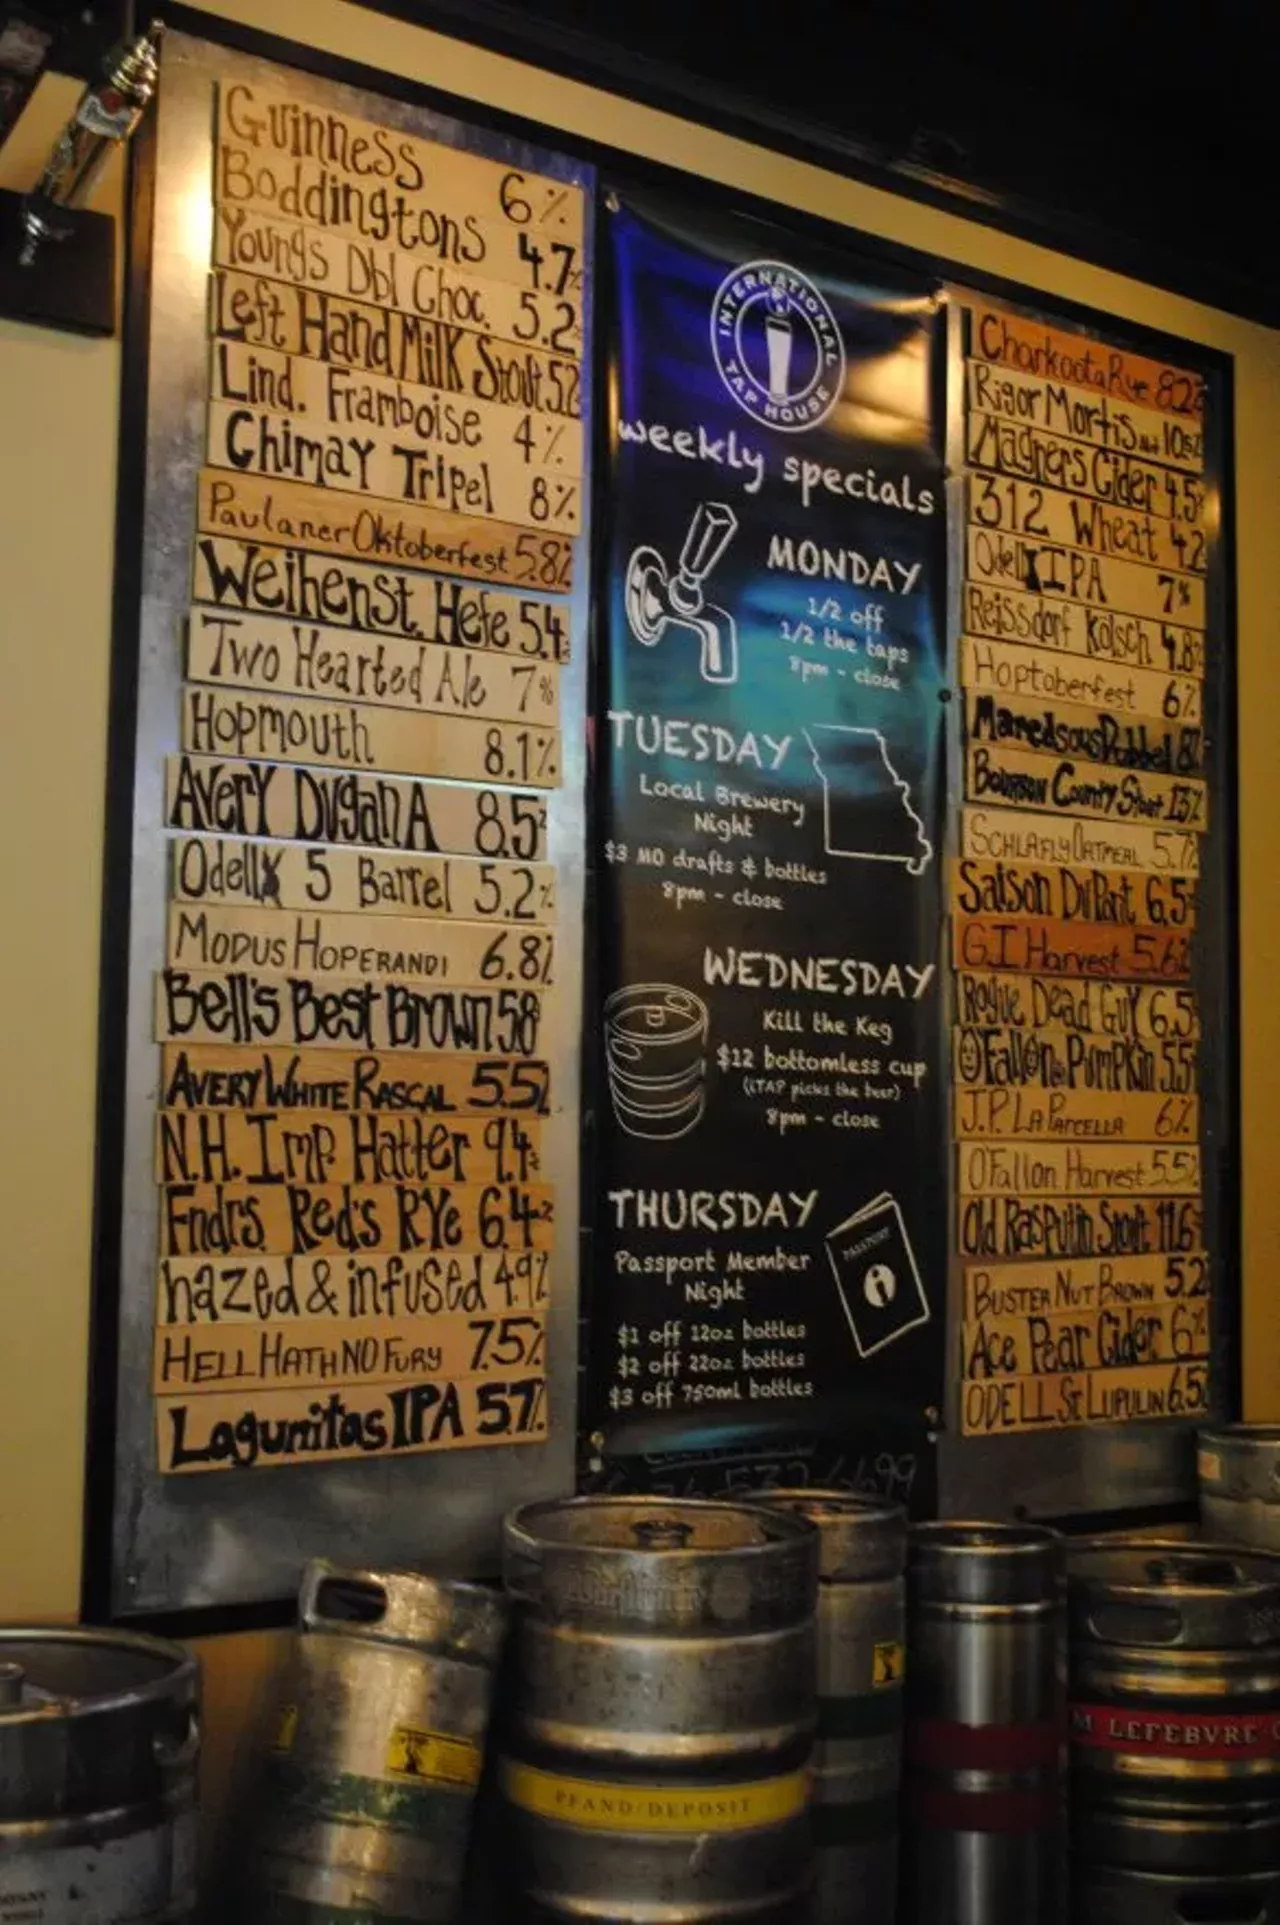 Guinness 6%
Boddingtons 4.7%
Youngs Dbl Choc. 5.2%
Left Hand Milk Stout 5.2
Lind. Framboise 4%
Chimay Tripel 8%
Paulaner Oktoberfest 5.8%
Weihenst. Hefe 5.4%
Two Hearted Ale 7%
Hopmouth 8.1%
Avery Dugana 8.5%
Odell 5 Barrel 5.2%
Modus Hoperandi 6.8%
Bell's Best Brown 5.8
Avery White Rascal 5.5%
N.H. Imp. Hatter 9.4%
Fndrs Red's Rye 6.4%
hazed & infused 4.9%
Hell Hath No Fury 7.5%
Lagunitas IPA 5.7%
INTERNATIONAL
TAP HOUSE
weekly specials
MONDAY
1/2 off
1/2 the taps
8pm - close
TUESDAY
Local Brewery
Night
$3 MO drafts & bottles
8pm - close
WEDNESDAY
Kill the Keg
$12 bottomless cup
(iTAP picks the beer)
8pm - close
THURSDAY
PASSPORT
Passport Member
Night
$1 off 12oz bottles
$2 off 22oz bottles
$3 off 750ml bottles
Charkoota Rye 8.2%
Rigor Mortis 10.5%
Magners Cider 4.5%
312 Wheat 4.2
Odell IPA 7%
Reissdorf Kolsch 4.8%
Hoptoberfest 6%
Maredsous Dubbel 8%
Bourbon County Stout 13%
Schlafly Oatmeal 5.7%
Saison DuPont 6.5%
G.I Harvest 5.6%
Rogue Dead Guy 6.5
O'Fallon Pumpkin 5.5%
J.P. La Parcella 6%
O'Fallon Harvest 5.5%
Old Rasputin Stout 11.6%
Buster Nut Brown 5.2
Ace Pear Cider 6%
ODELL St Lupulin 6.5
PFAND/DEPOSIT
M LEFEBVRE